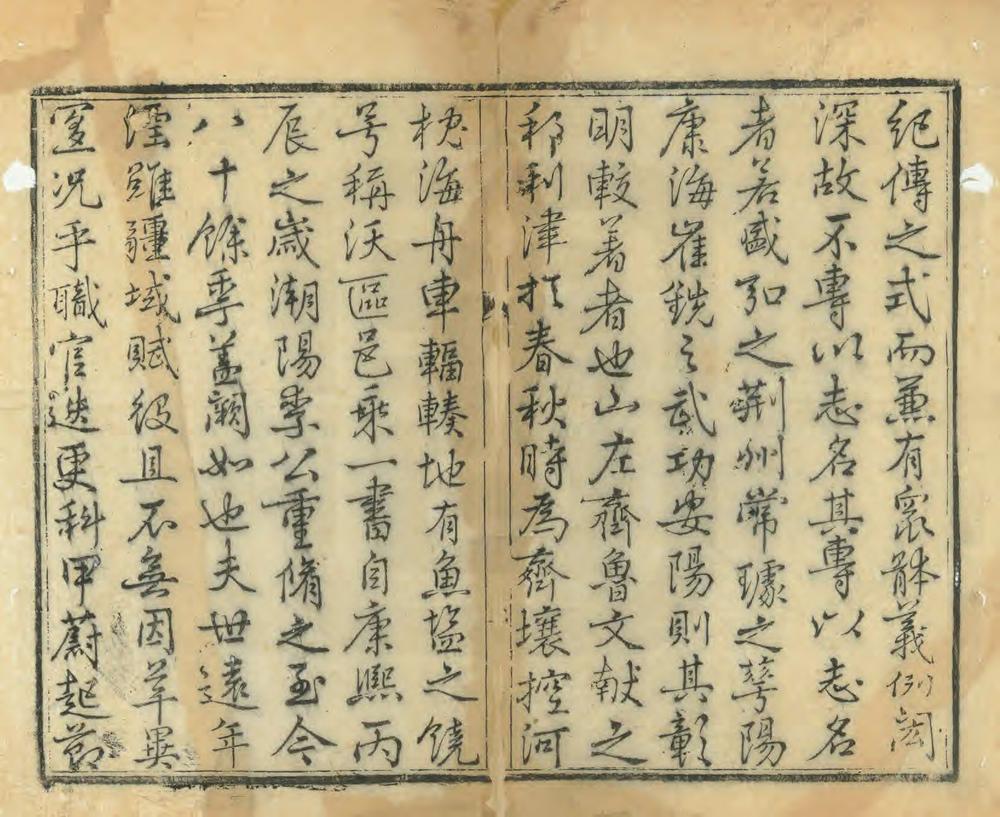 紀傳之式而兼有眾體義例閎
深故不專以志名其專以志名
者若盛弘之荆州常璩之華陽
康海崔銑之武功安陽則其彰
明較著者也山左齊魯文獻之
邦利津於春秋時為齊壤控河
枕海舟車輻輳地有魚塩之饒
号稱沃區邑乘一書自康熙丙
辰之歲潮陽李公重脩之至今
八十餘季蓋闕如也夫世遠年
湮雖疆域賦役且不無因革異
宜况乎職官迭更科甲蔚起節